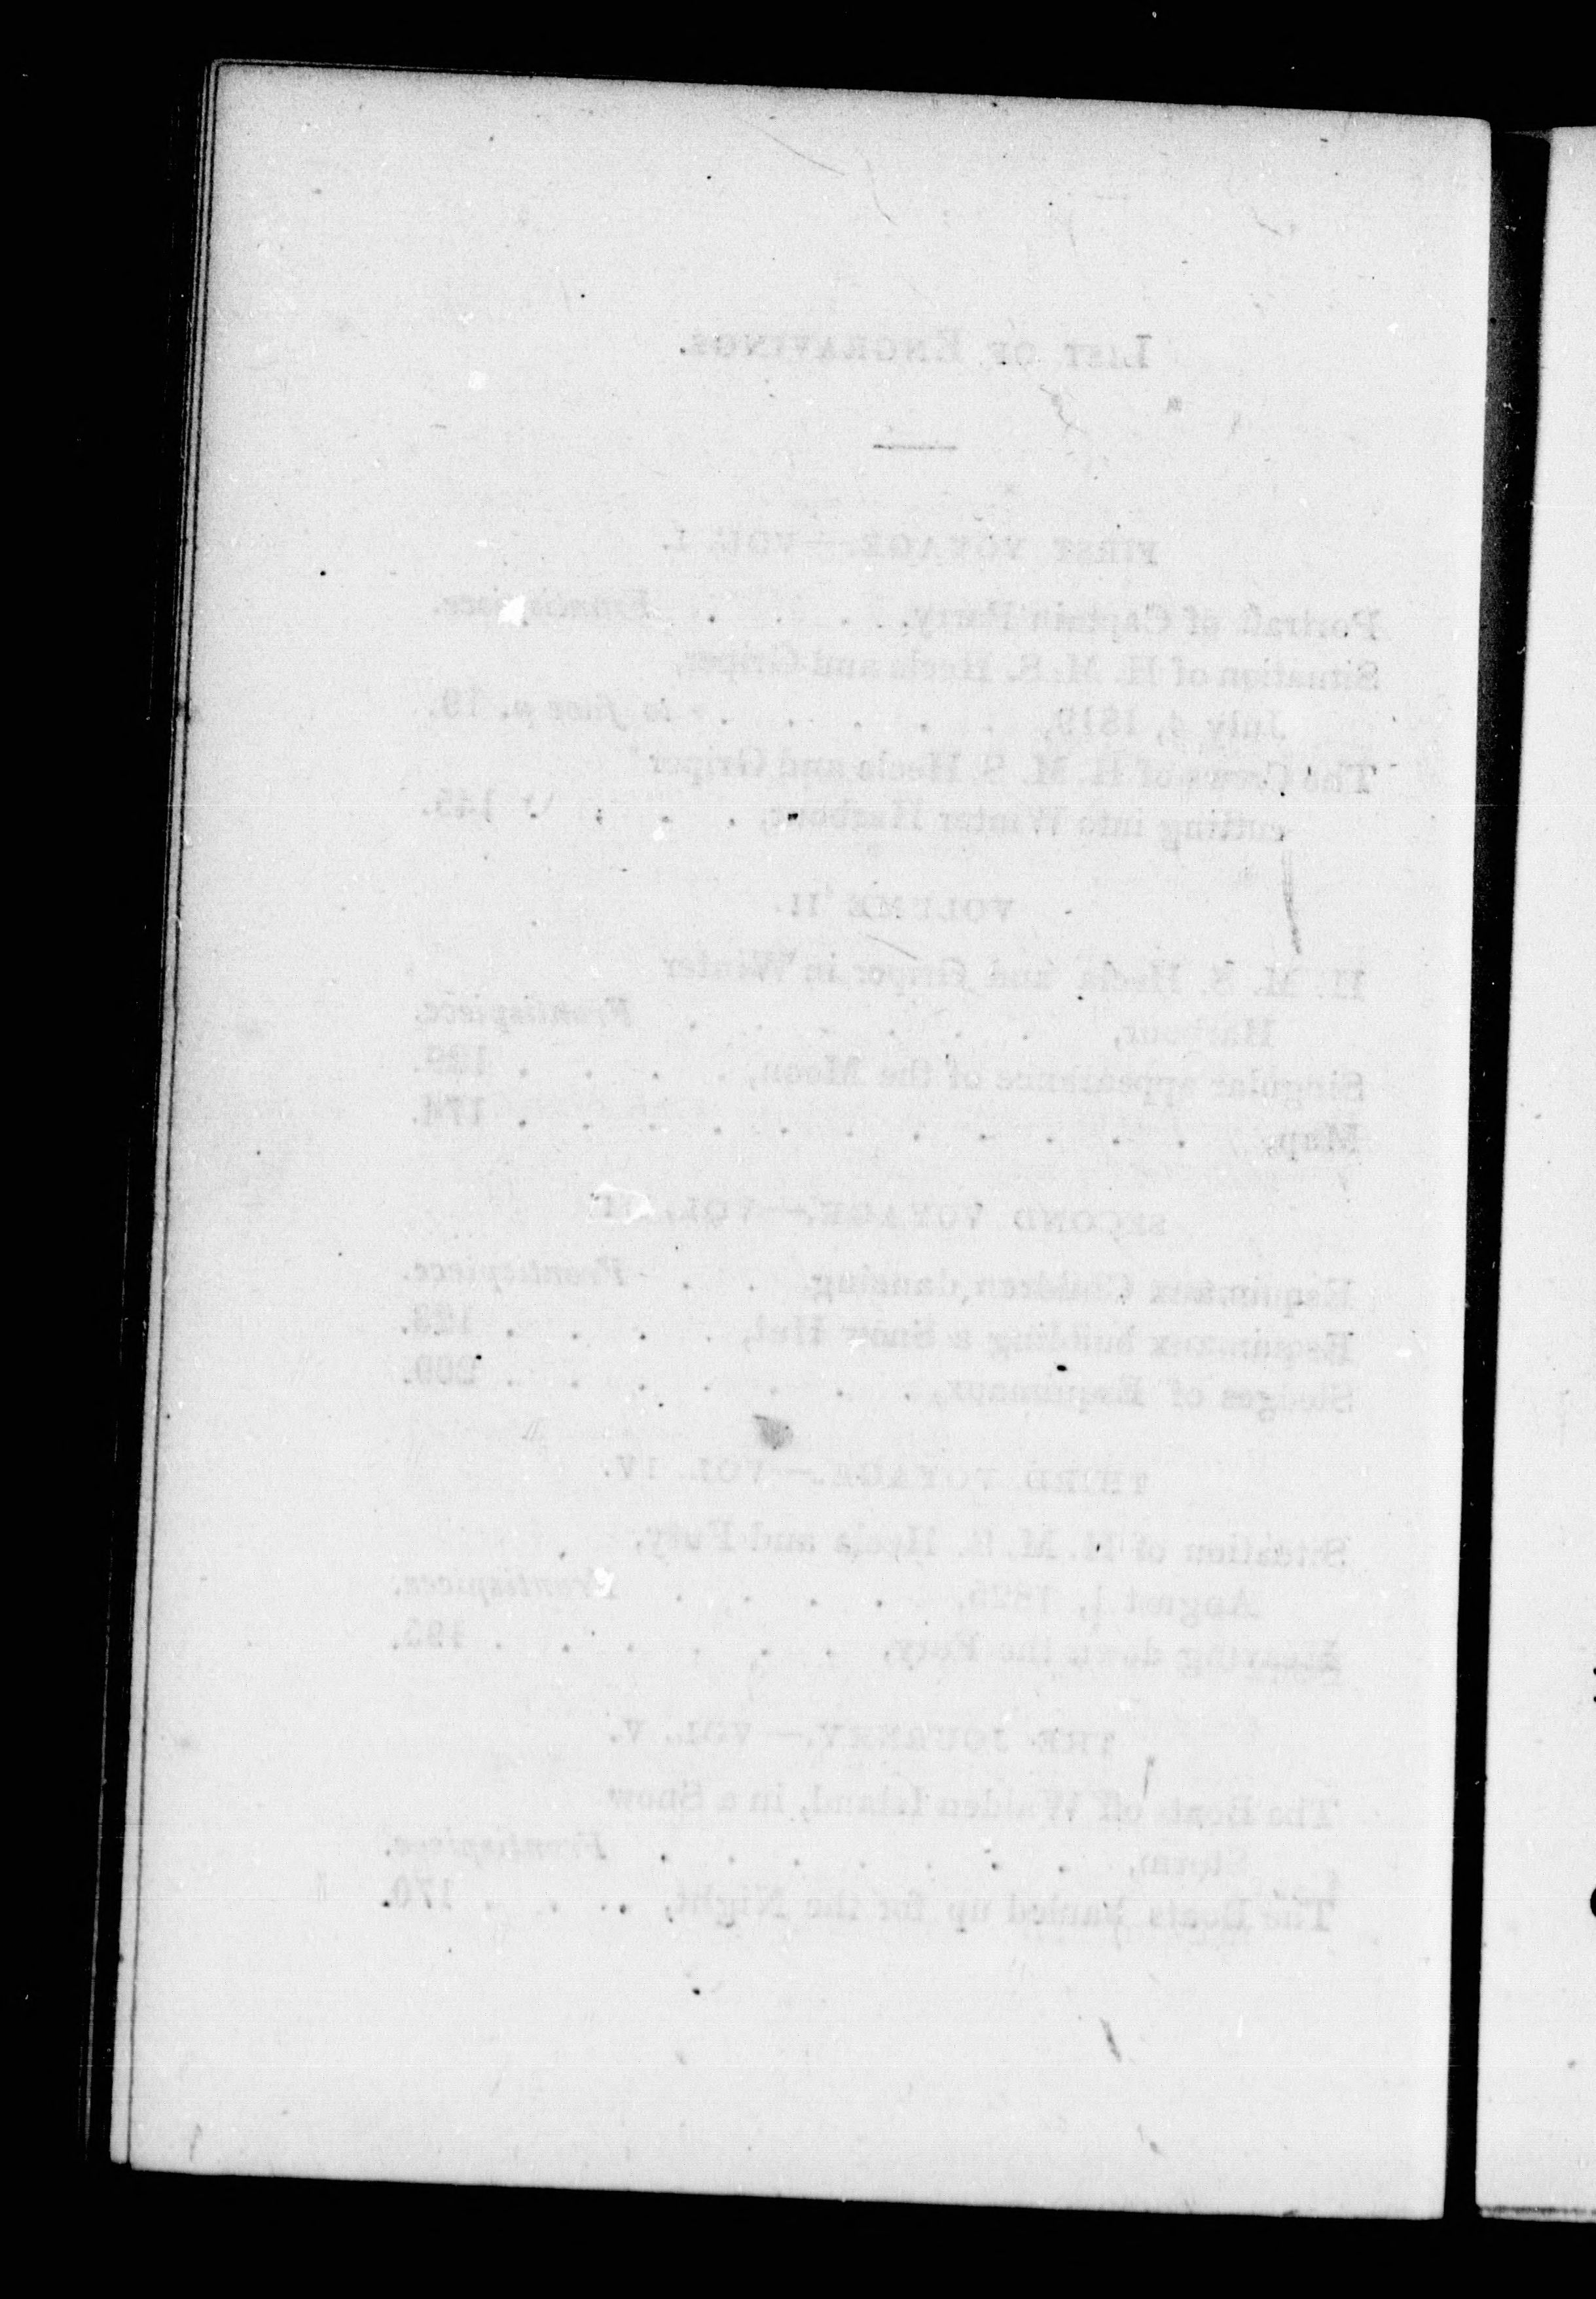 LIST OF ENGRAVINGS.
FIRST VOYAGE.—VOL. I.
Portrait of Captain Parry, . . . . Frontispiece.
Situation of H. M. S. Hecla and Griper,
July 4, 1819, . . . . . to face p. 19.
The Crews of H. M. S. Hecla and Griper
cutting into Winter Harbour, . . . 145.
VOLUME II.
H. M. S. Hecla and Griper in Winter
Harbour, . . . . . . Frontispiece.
Singular appearance of the Moon, . . . .
Map, . . . . . . . . . . . 174.
SECOND VOYAGE.—VOL. III.
Esquimaux Children dancing, . . Frontispiece.
Esquimaux building a Snow Hut, . . . . 123.
Sledges of Esquimaux, . . . . . . . 200.
THIRD VOYAGE.—VOL. IV.
Situation of H. M. S. Hecla and Fury,
August 1, 1825, . . . . Frontispiece.
Heaving down the Fury, . . . . . . 195.
THE JOURNEY.—VOL. V.
The Boats off Walden Island, in a Snow
Storm, . . . . . . . Frontispiece.
The Boats hauled up for the Night, . . . 170.